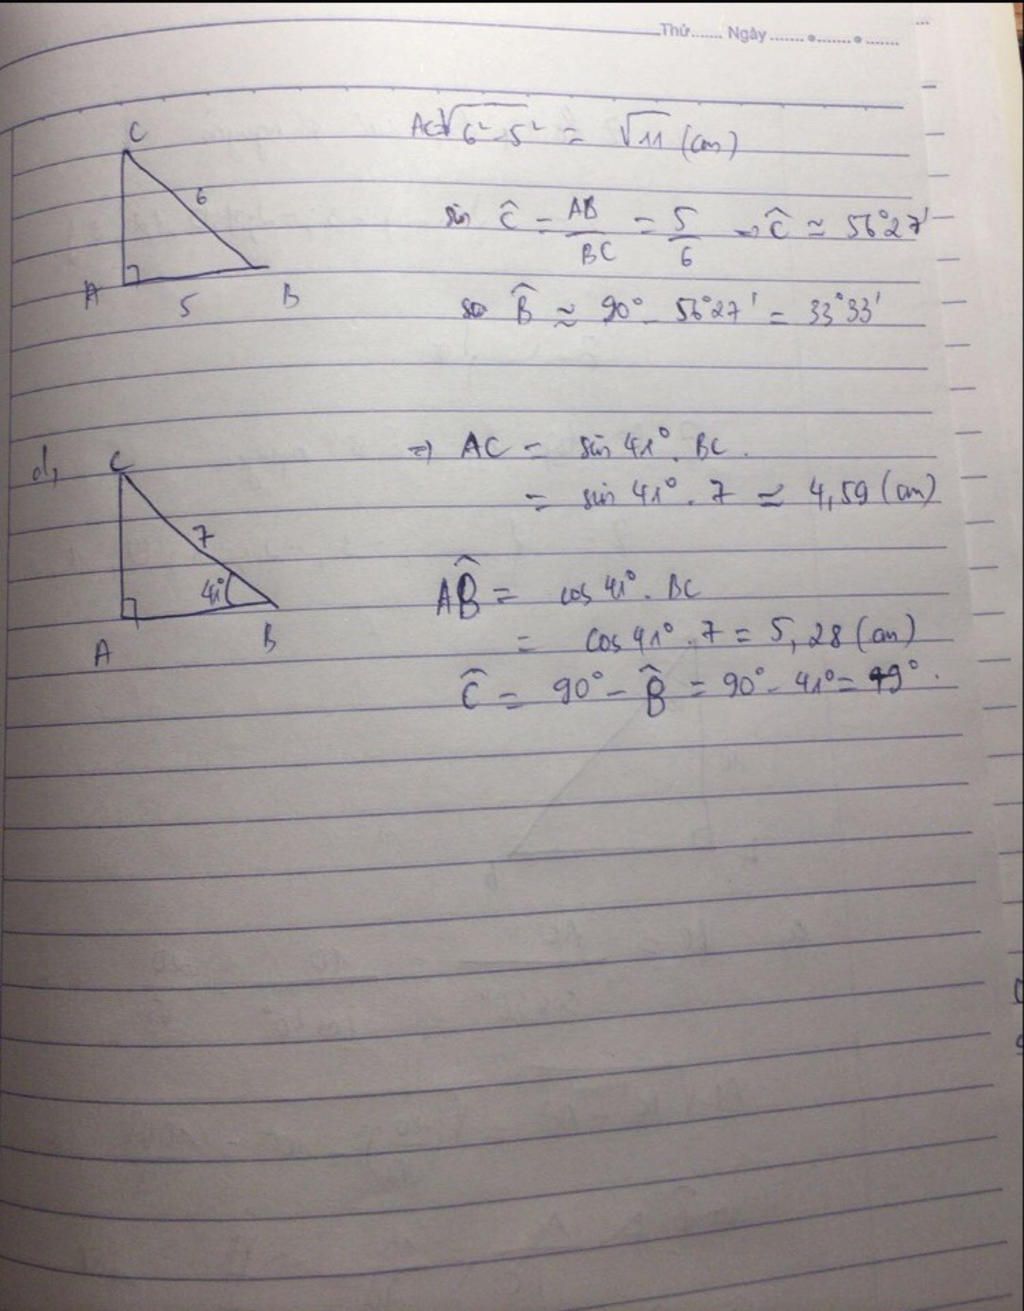 Thứ....... Ngày.......•.......•.......
C
AC=√6²-5² = √11 (cm)
6
sin Ĉ = AB/BC = 5/6 ⇒ Ĉ ≈ 56°27'
A
5
B
B̂ ≈ 90° - 56°27' = 33°33'
d,
C
⇒ AC = sin 41° . BC.
= sin 41° . 7 ≈ 4,59 (cm)
7
41°
AB̂ = cos 41° . BC
= cos 41° . 7 = 5,28 (cm)
A
B
Ĉ = 90° - B̂ = 90° - 41° = 49°.